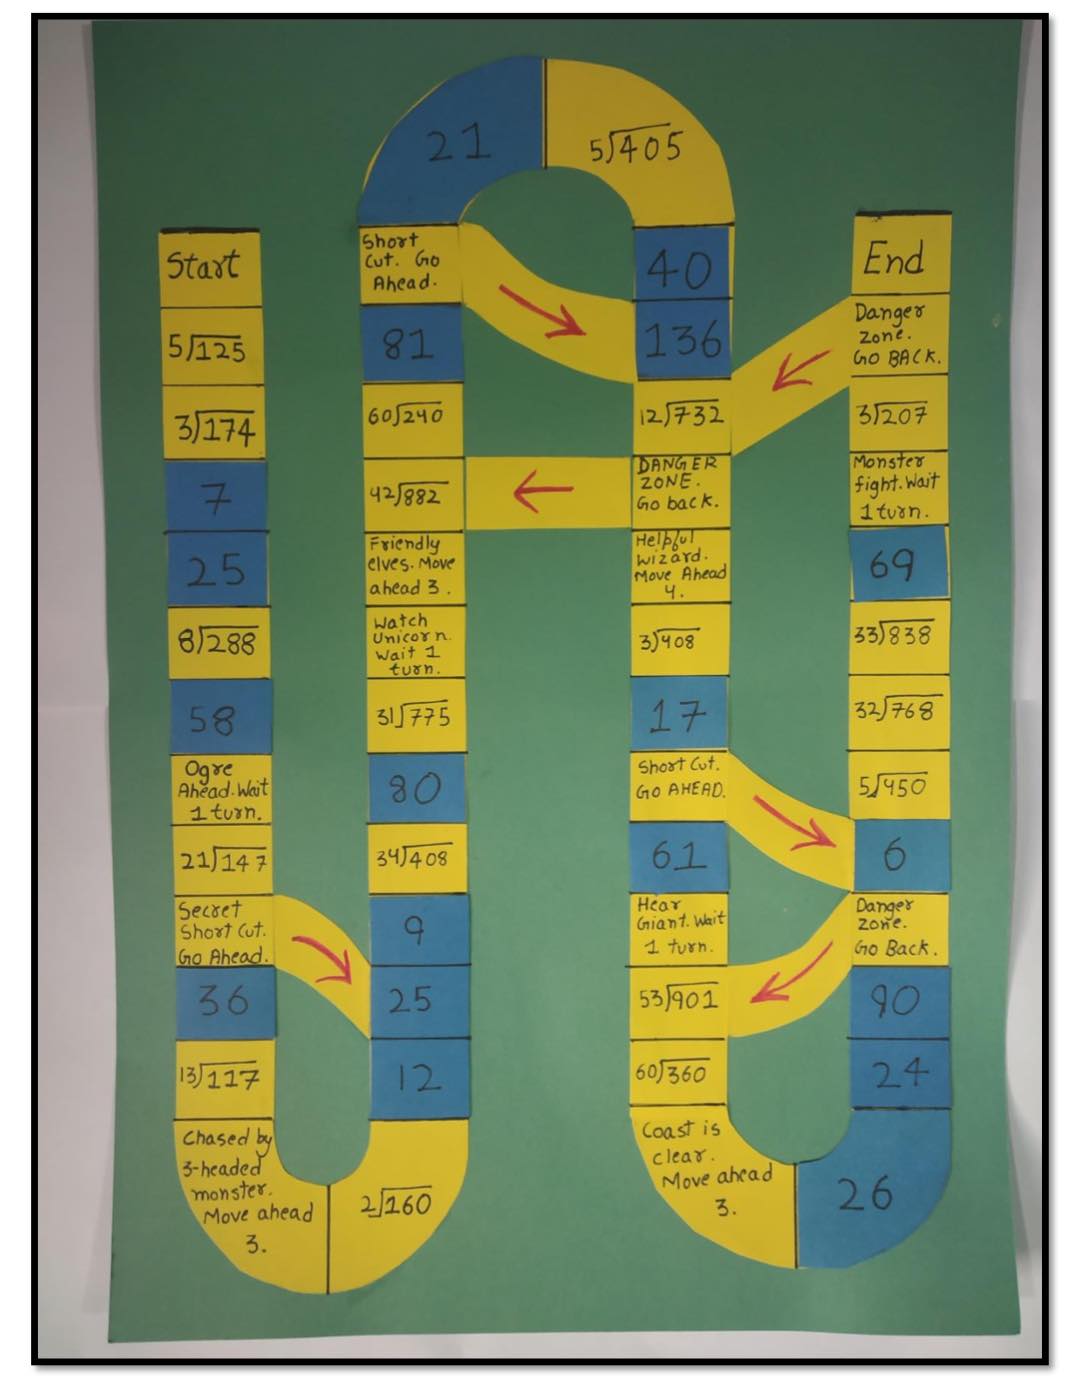 Start
5)125
3)174
7
25
8)288
58
Ogre
Ahead. Wait
1 turn.
21)147
Secret
Short Cut.
Go Ahead.
36
13)117
Chased by
3-headed
monster.
Move ahead
3.
2)160
12
25
9
34)408
80
31)775
Watch
Unicorn.
Wait 1
turn.
Friendly
elves. Move
ahead 3.
42)882
60)240
81
Short
Cut. Go
Ahead.
21
5)405
40
136
12)732
DANGER
ZONE.
Go back.
Helpful
wizard.
Move Ahead
4.
3)408
17
Short Cut.
GO AHEAD.
61
Hear
Giant. Wait
1 turn.
53)901
60)360
Coast is
clear.
Move ahead
3.
26
24
90
Danger
zone.
Go Back.
6
5)450
32)768
33)838
69
Monster
fight. Wait
1 turn.
3)207
Danger
zone.
GO BACK.
End